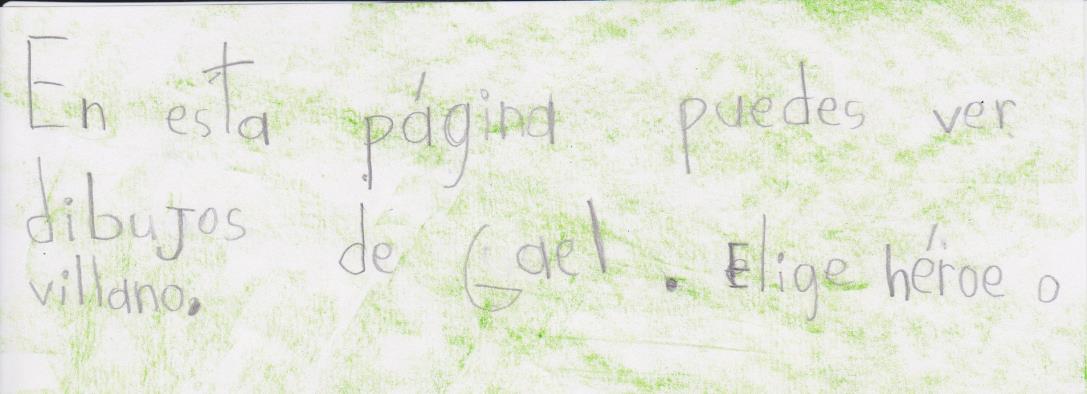 En esta página puedes ver
dibujos de Gael. Elige héroe o
villano.